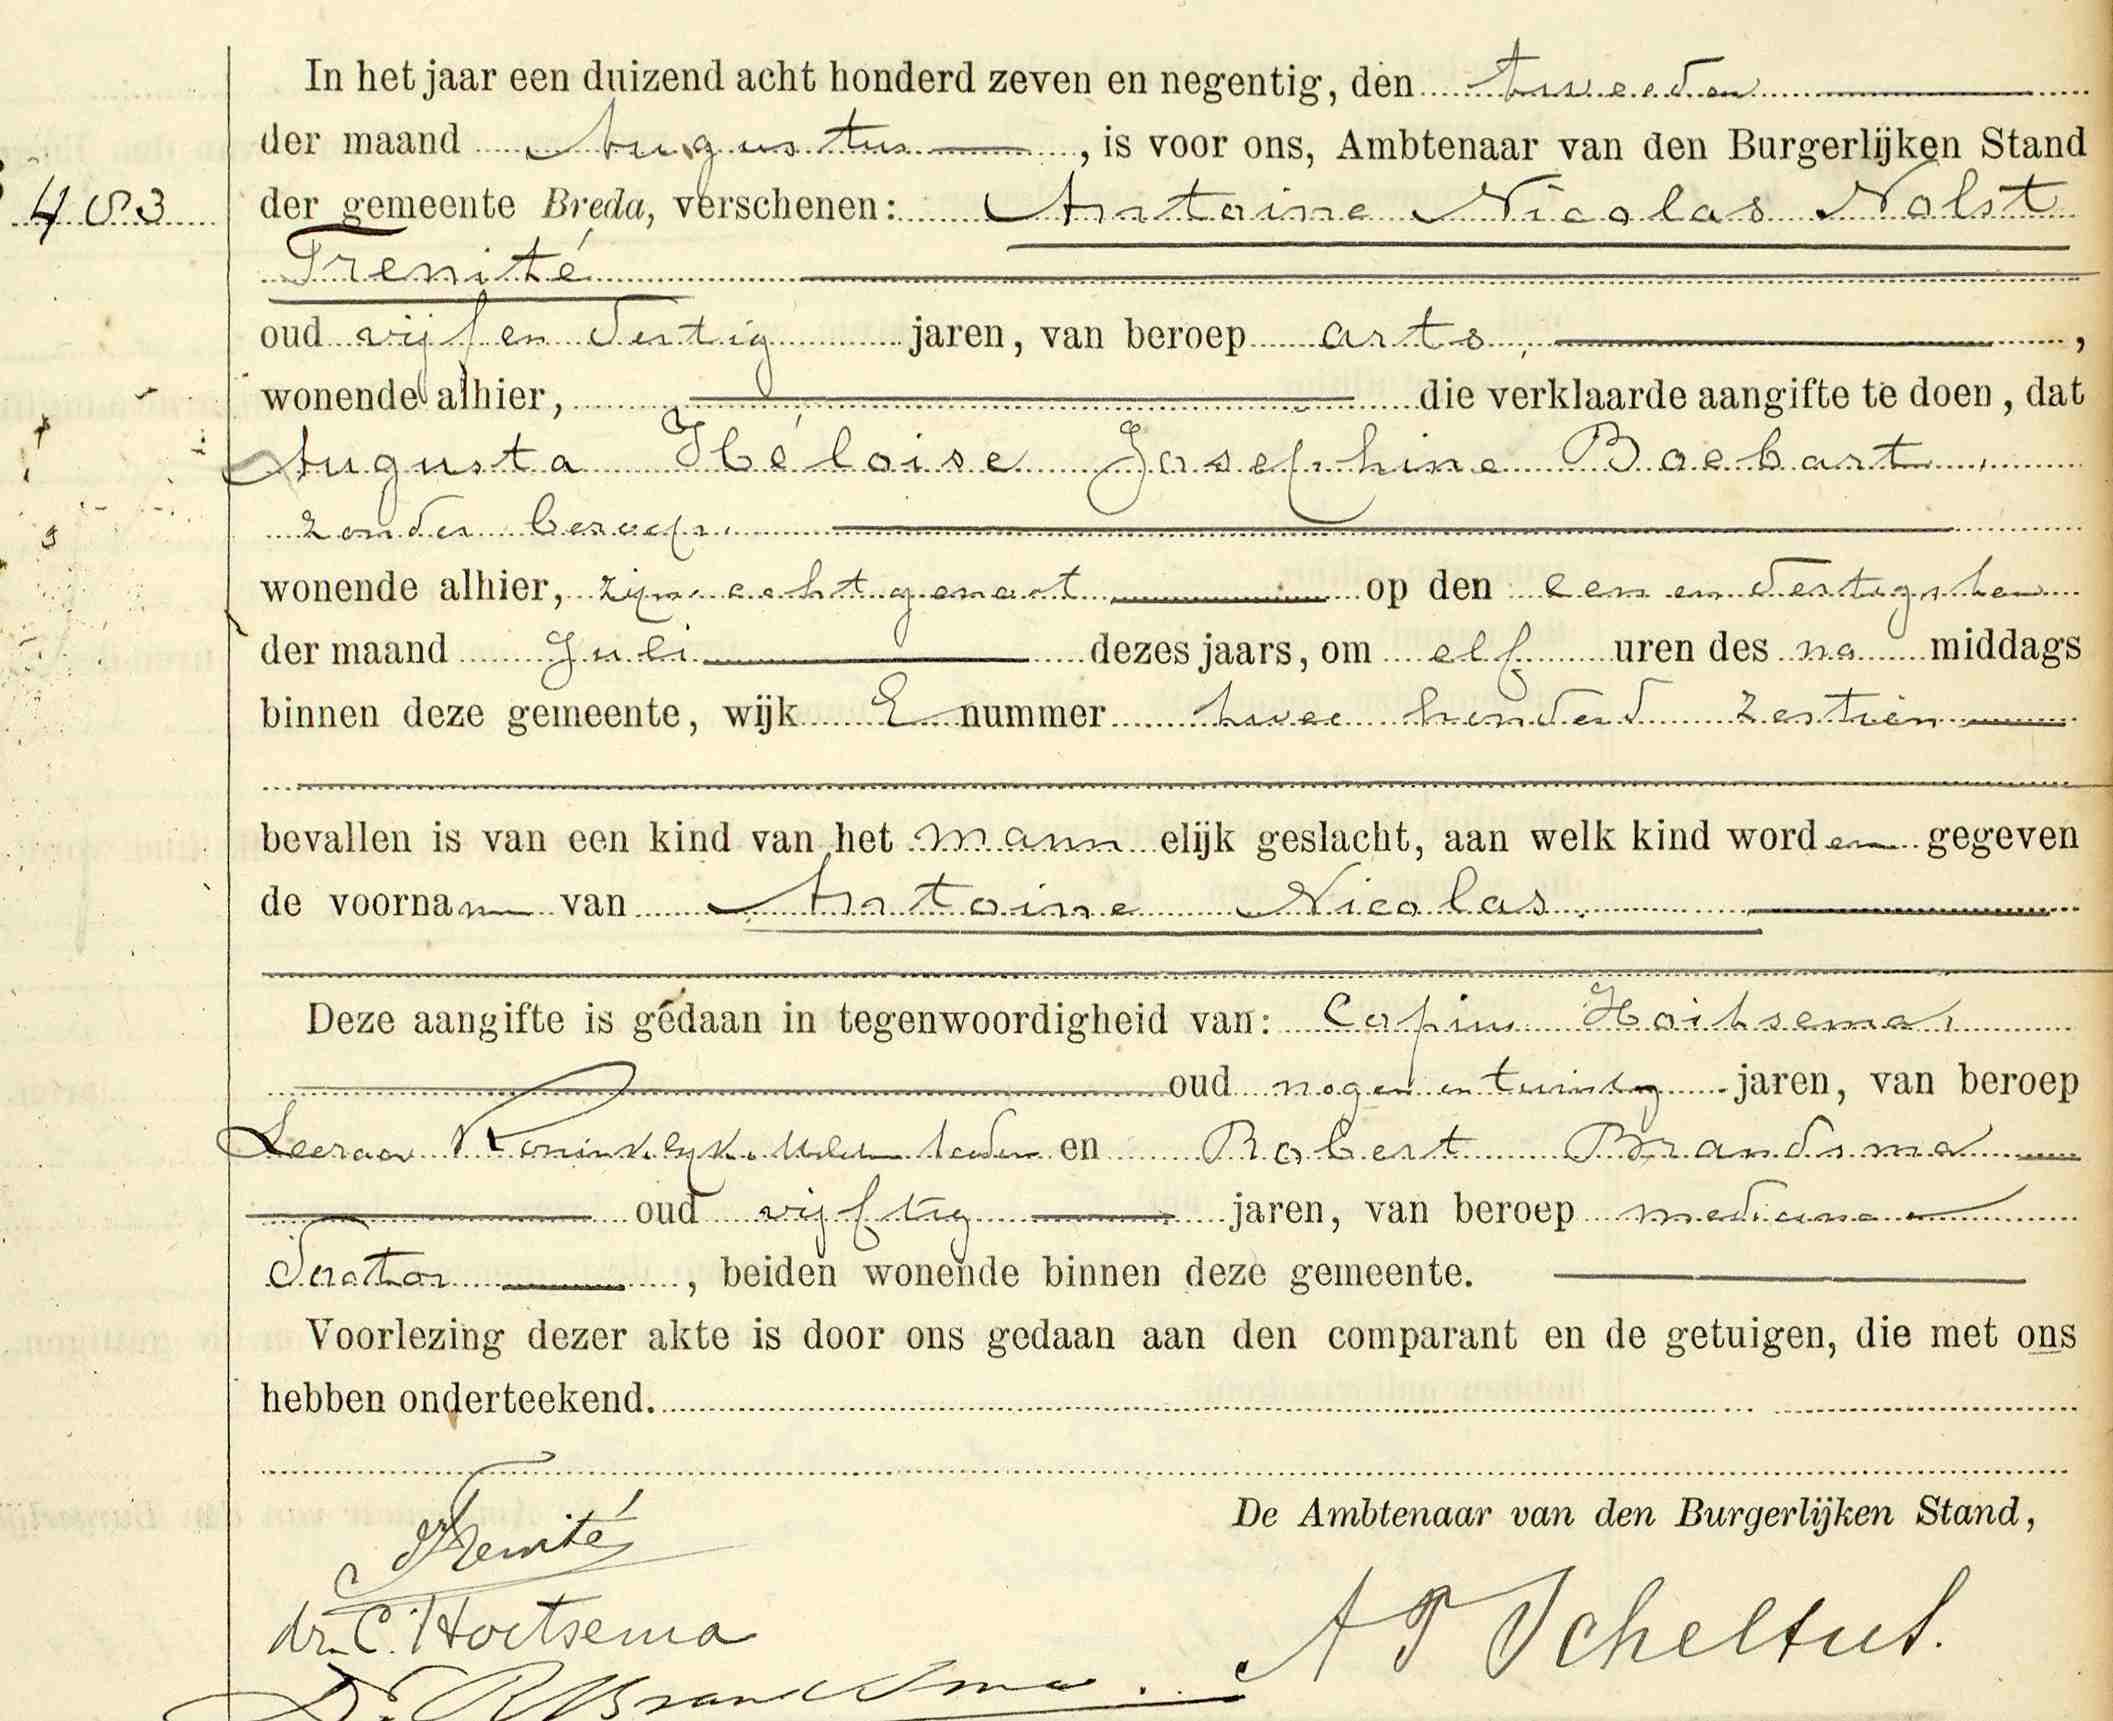 In het jaar een duizend acht honderd zeven en negentig, den tweeden
der maand Augustus, is voor ons, Ambtenaar van den Burgerlijken Stand
483
der gemeente Breda, verschenen: Antoine Nicolas Nolst
Trenité
oud vijf en dertig jaren, van beroep arts,
wonende alhier, die verklaarde aangifte te doen, dat
Augusta Héloise Josephine Boebart
zonder beroep
wonende alhier, zijne echtgenoot op den een en dertigsten
der maand Juli dezes jaars, om elf uren des na middags
binnen deze gemeente, wijk E nummer twee honderd zestien
bevallen is van een kind van het mann elijk geslacht, aan welk kind worden gegeven
de voornam van Antoine Nicolas
Deze aangifte is gedaan in tegenwoordigheid van: Hoitsema,
oud negen en twintig jaren, van beroep
Leeraar Koninklijke en Robert Brandsma
oud vijftig jaren, van beroep medicinae
Doctor, beiden wonende binnen deze gemeente.
Voorlezing dezer akte is door ons gedaan aan den comparant en de getuigen, die met ons
hebben onderteekend.
De Ambtenaar van den Burgerlijken Stand,
Trenité
dr. C. Hoitsema
Dr. R Brandsma